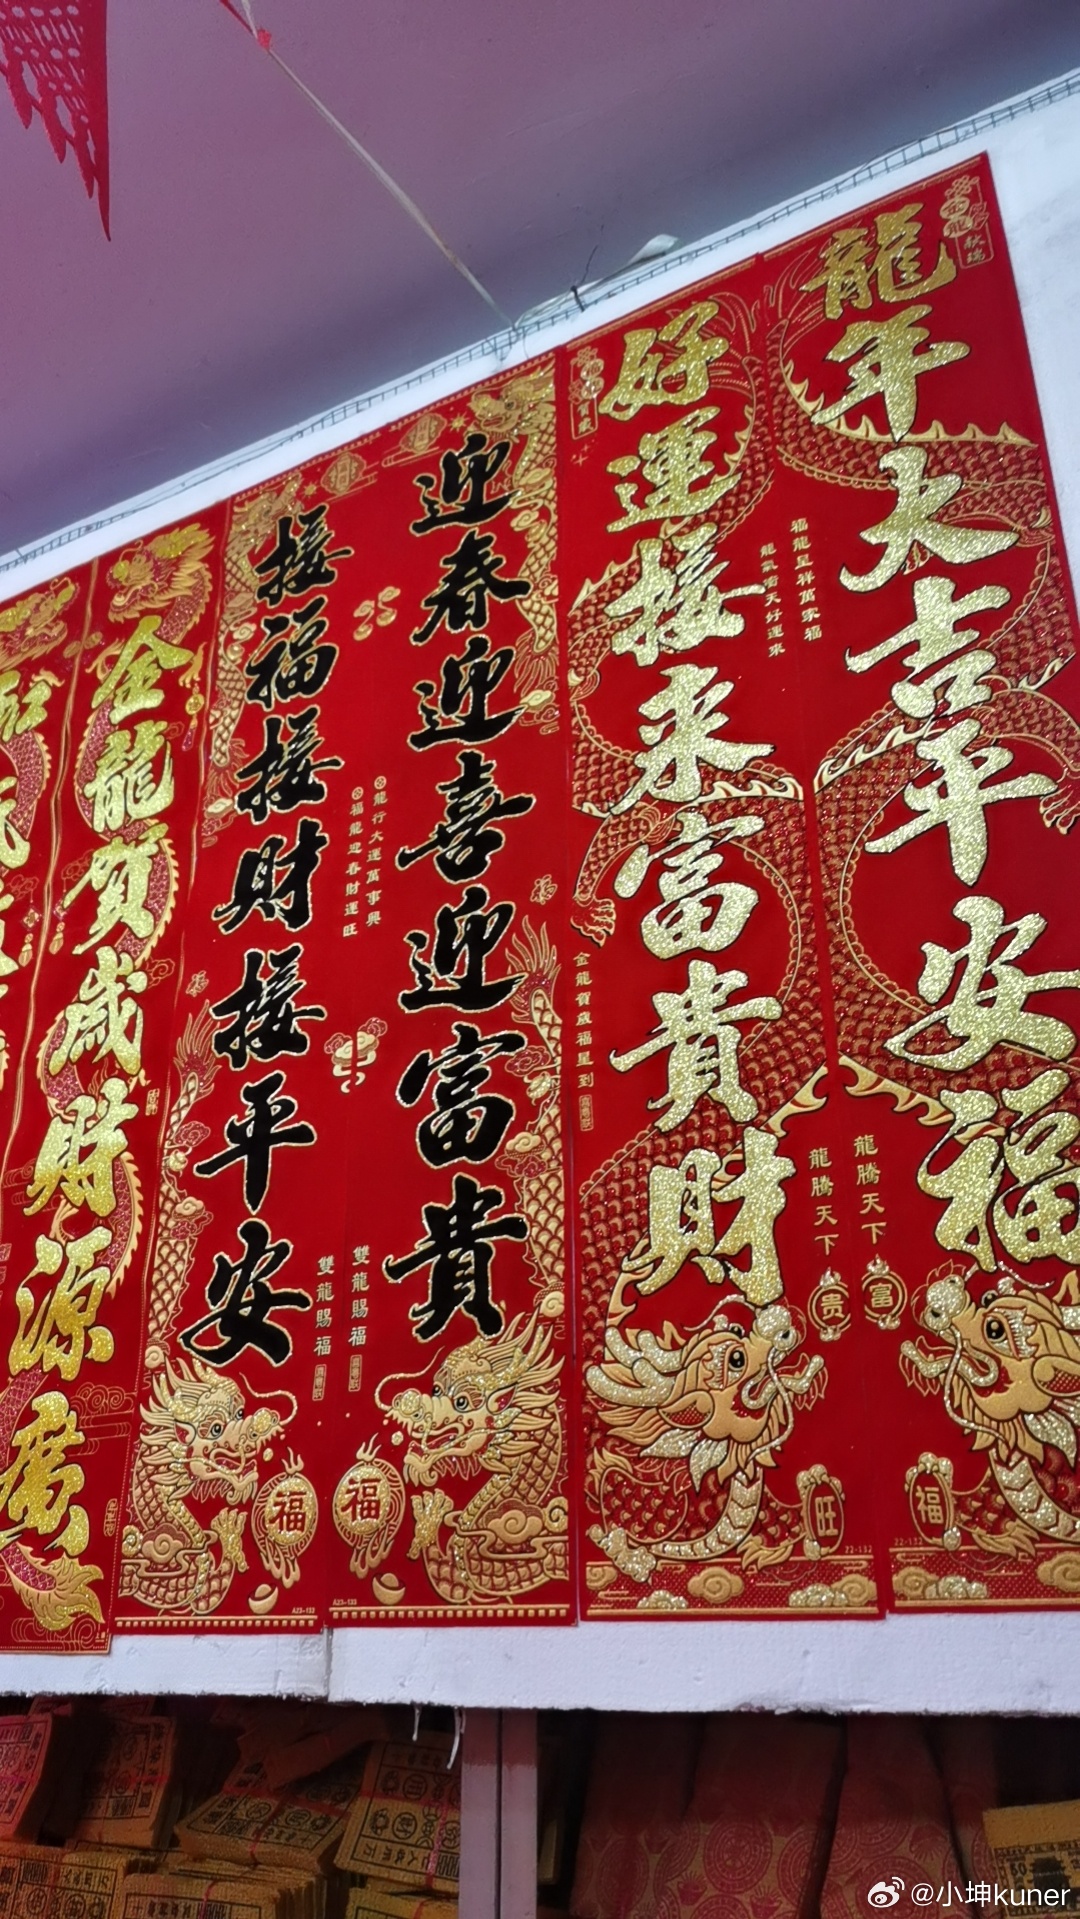 龍年大吉平安福
好運接来富貴財
福龍呈祥萬家福
龍氣沖天好運來
龍騰天下
龍騰天下
富
贵
福
旺
金龍賀歳福星到
22-132
22-132
迎春迎喜迎富貴
接福接財接平安
龍行大運萬事興
福龍迎春財運旺
雙龍賜福
雙龍賜福
福
福
A23-133
A23-132
金龍賀歳財源廣
@小坤kuner